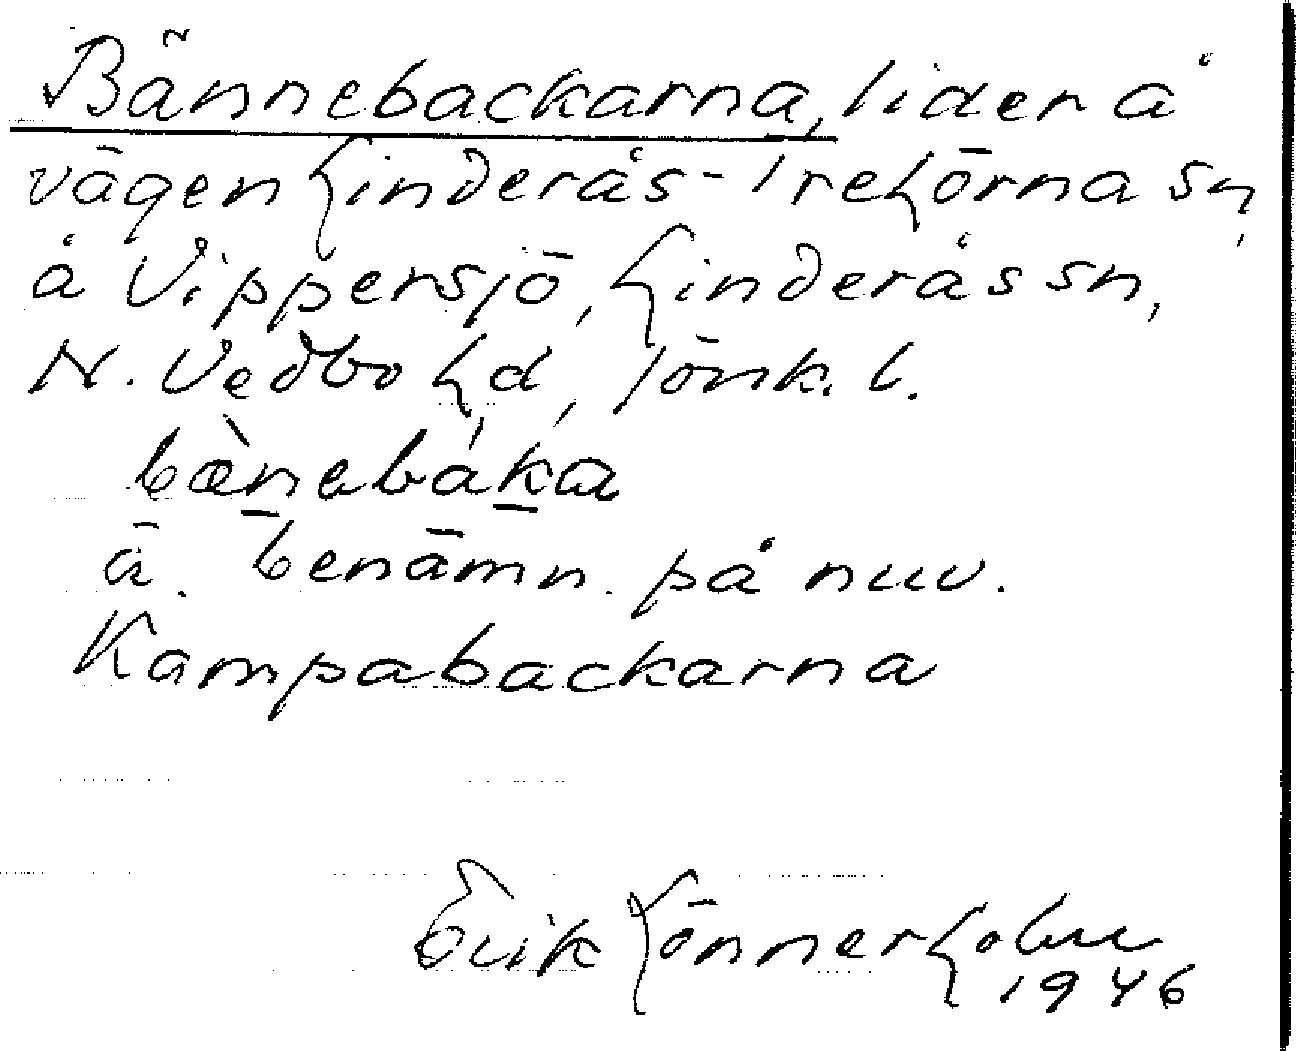 Bännebackarna, lider å
vägen Linderås-Trehörna sn,
å Vippersjö, Linderås sn,
N. Vedbo hd, Jönk. l.
bænebáka
ä. benämn. på nuv.
Kampabackarna
Erik Lönnerholm
1946